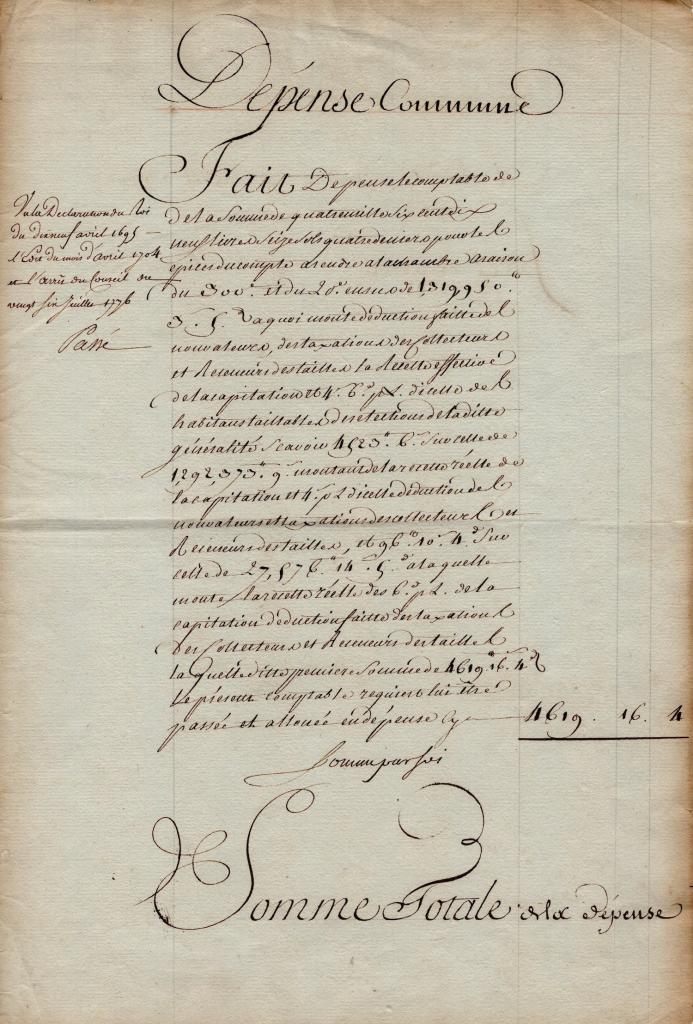 Dépense Commune
Fait Depense le comptable de
de la Somme de quatre mille Six cent dix
neuf livres Seize Sols quatre deniers pour les
épices du compte a rendre a la chambre a raison
du 300e. et du 20e. en sus de 1,319950.tt
3.s 5.d a quoi monte déduction faitte des
nonvaleurs, des taxations des Collecteurs
et Receveurs des tailles la Recette effective
de la capitation et 4.s 6.d p L. dicelle des
habitans taillables des elections de la ditte
généralité Scavoir 4523.tt 6.s Sur celle de
1,292,373.tt 9.s montant de la recette réelle de
la capitation et 4.s p L dicelle déduction des
nonvaleurs et taxations des collecteurs et
Receveurs des tailles, et 96.tt 10.s 4.d Sur
celle de 27,576.tt 14.s 5.d a laquelle
monte la recette réelle des 6.d p L. de la
capitation déduction faitte des taxations
des Collecteurs et Receveurs des tailles
la quelle ditte premiere Somme de 4619.tt 16.s 4.d
le présent comptable requiert lui être
passée et allouée en dépense Cy 4619. 16. 4
Somme par soi
Somme Totale de la dépense
Vu la Declaration du Roi
du dixneuf avril 1695
l'Edit du mois d'avril 1704
et l'arrêt du Conseil du
vingt six juillet 1776
Passé